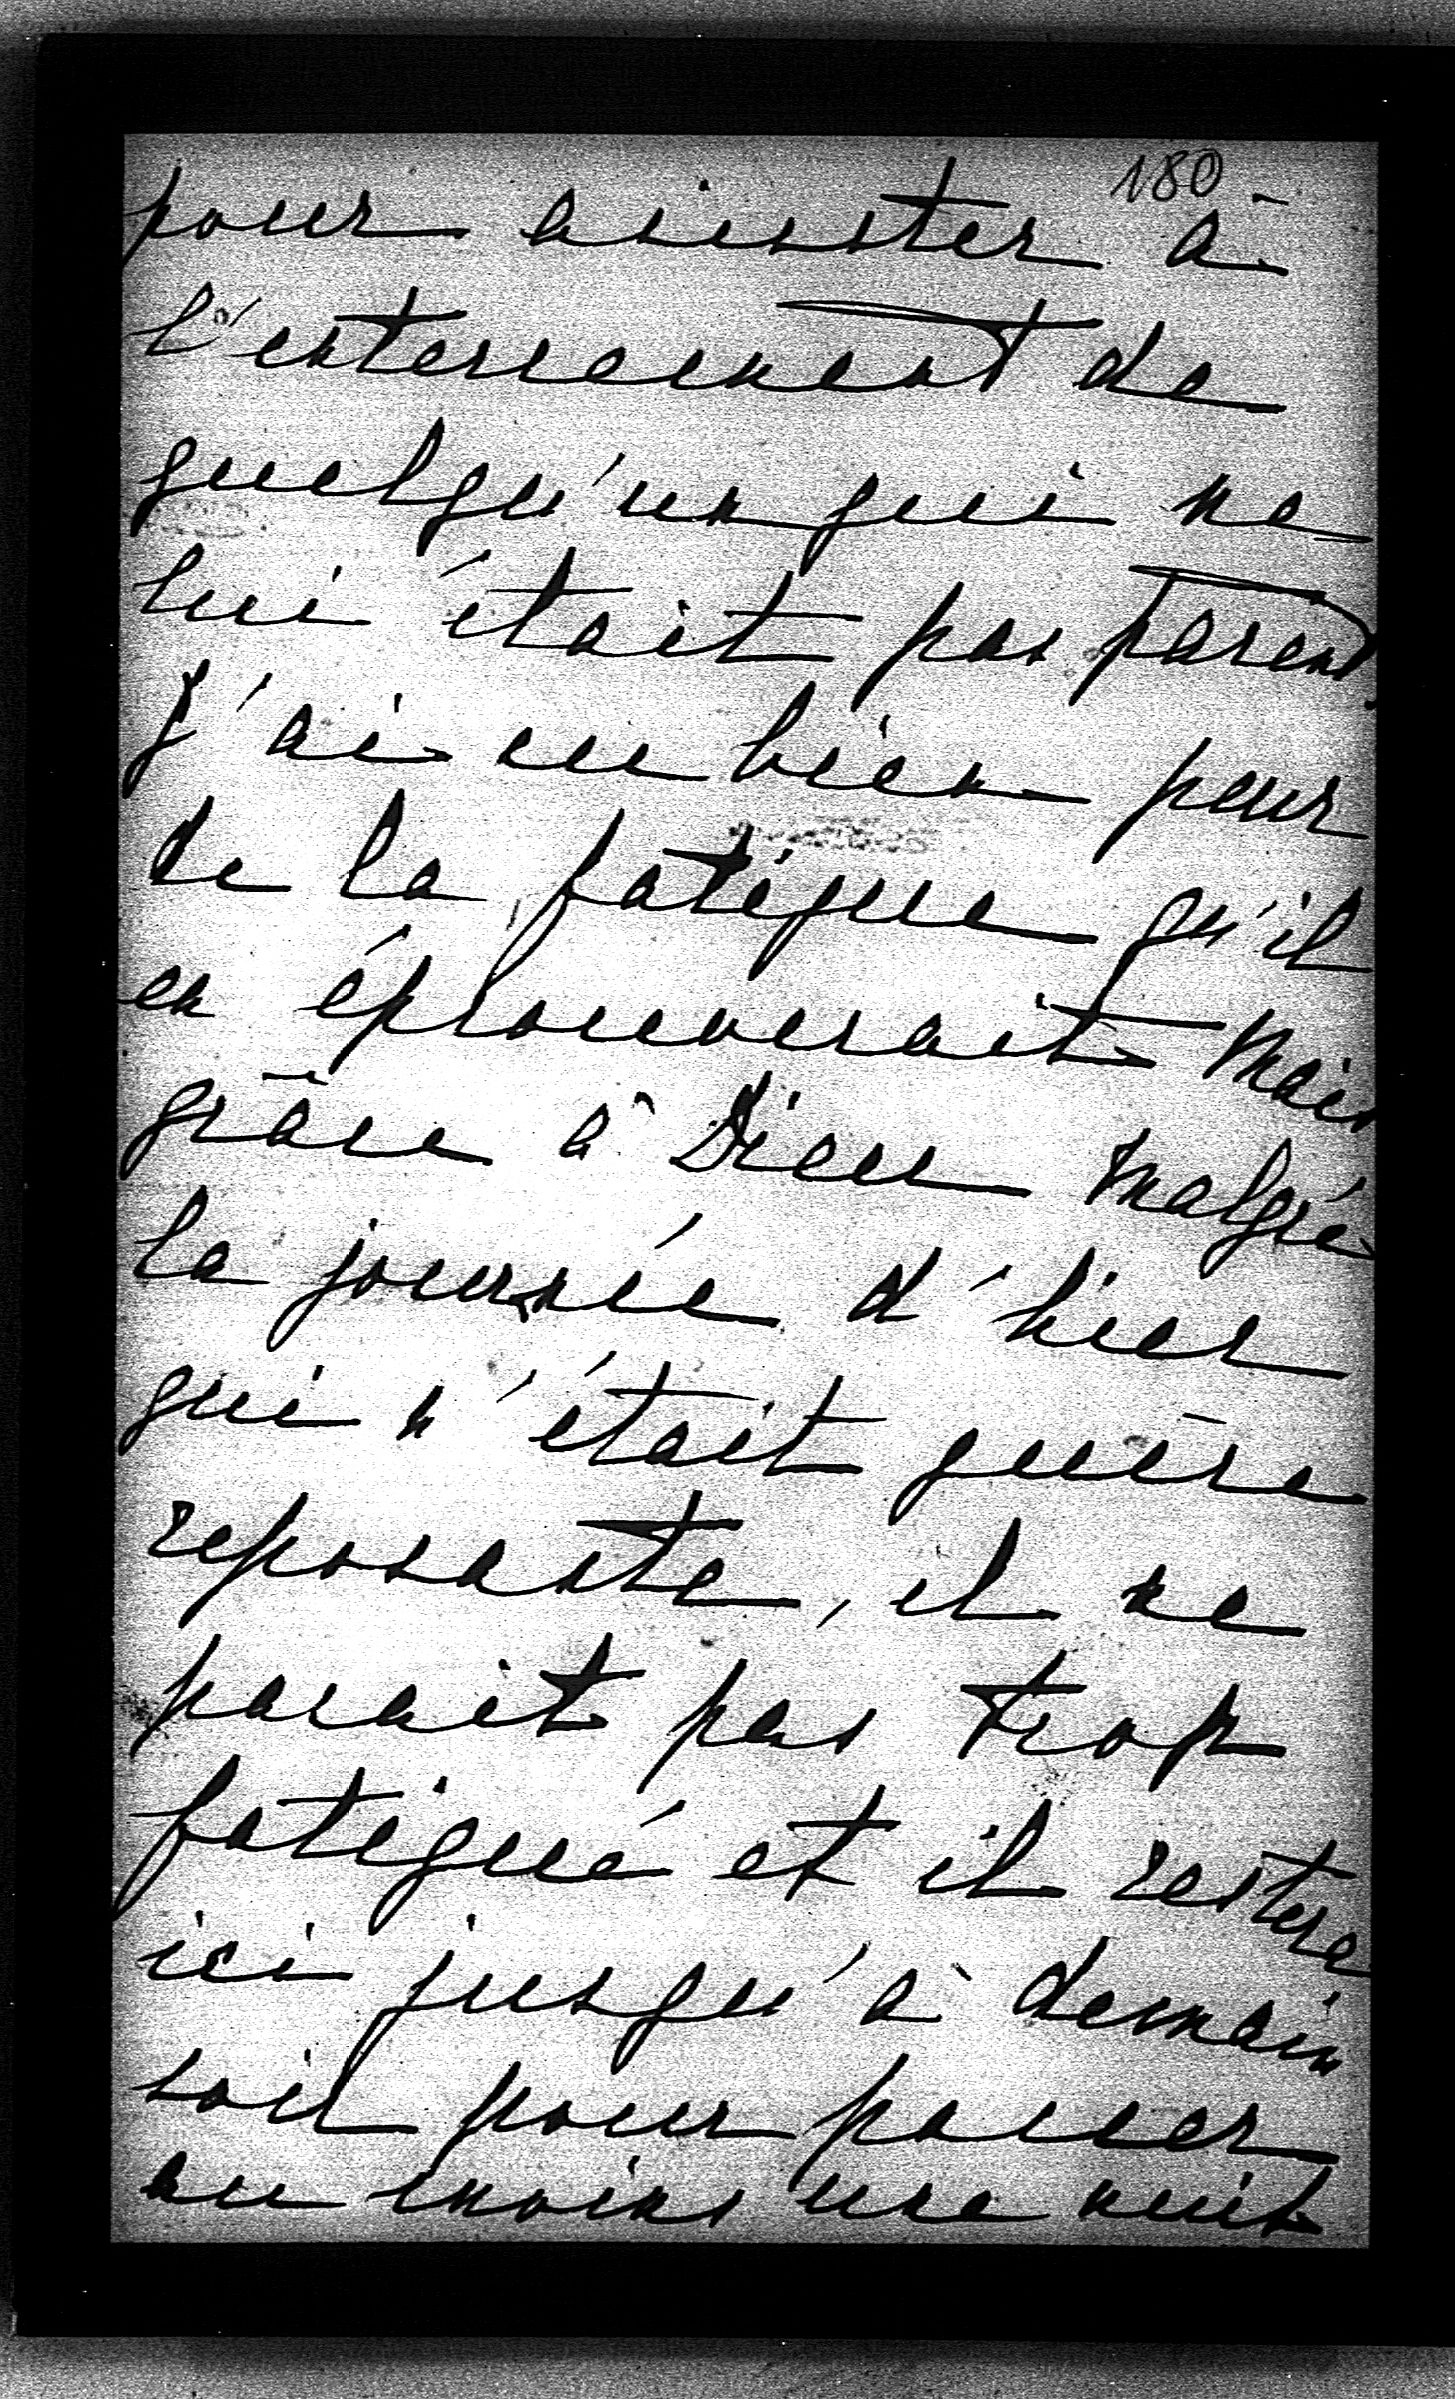 180
pour assister à
l'enterrement de
quelqu'un qui ne
lui était pas parent.
J'ai eu bien peur
de la fatigue qu'il
en éprouverait mais
grâce à Dieu malgré
la journée d'hier
qui n'était guère
reposante, il ne
parait pas trop
fatigué et il restera
ici jusqu'à demain
soir pour passer
au moins une nuit